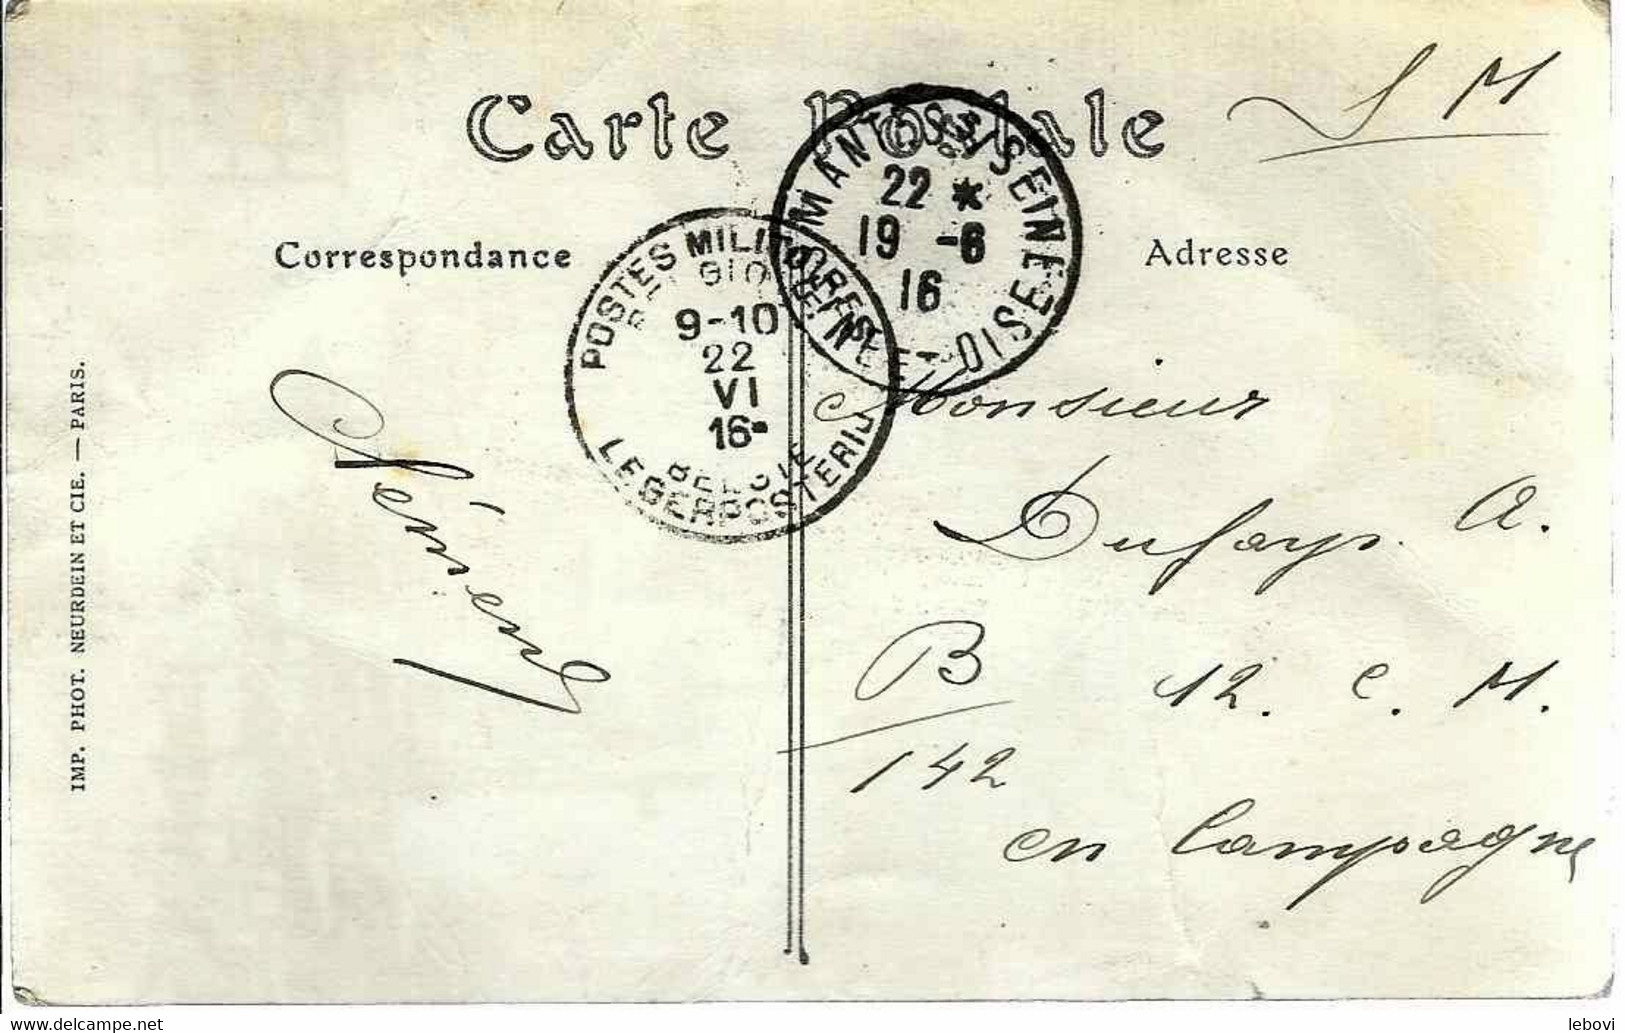 Carte Postale
S M
Correspondance
Adresse
MANTES-S-SEINE
22 *
19 -6
16
SEINE ET OISE
POSTES MILITAIRES
9-10
22
VI
16
BELGIE
LEGERPOSTERIJ
Monsieur
Dufays. A.
B 12. C. M.
142
en Campagne
Clément
IMP. PHOT. NEURDEIN ET CIE. — PARIS.
lebovi